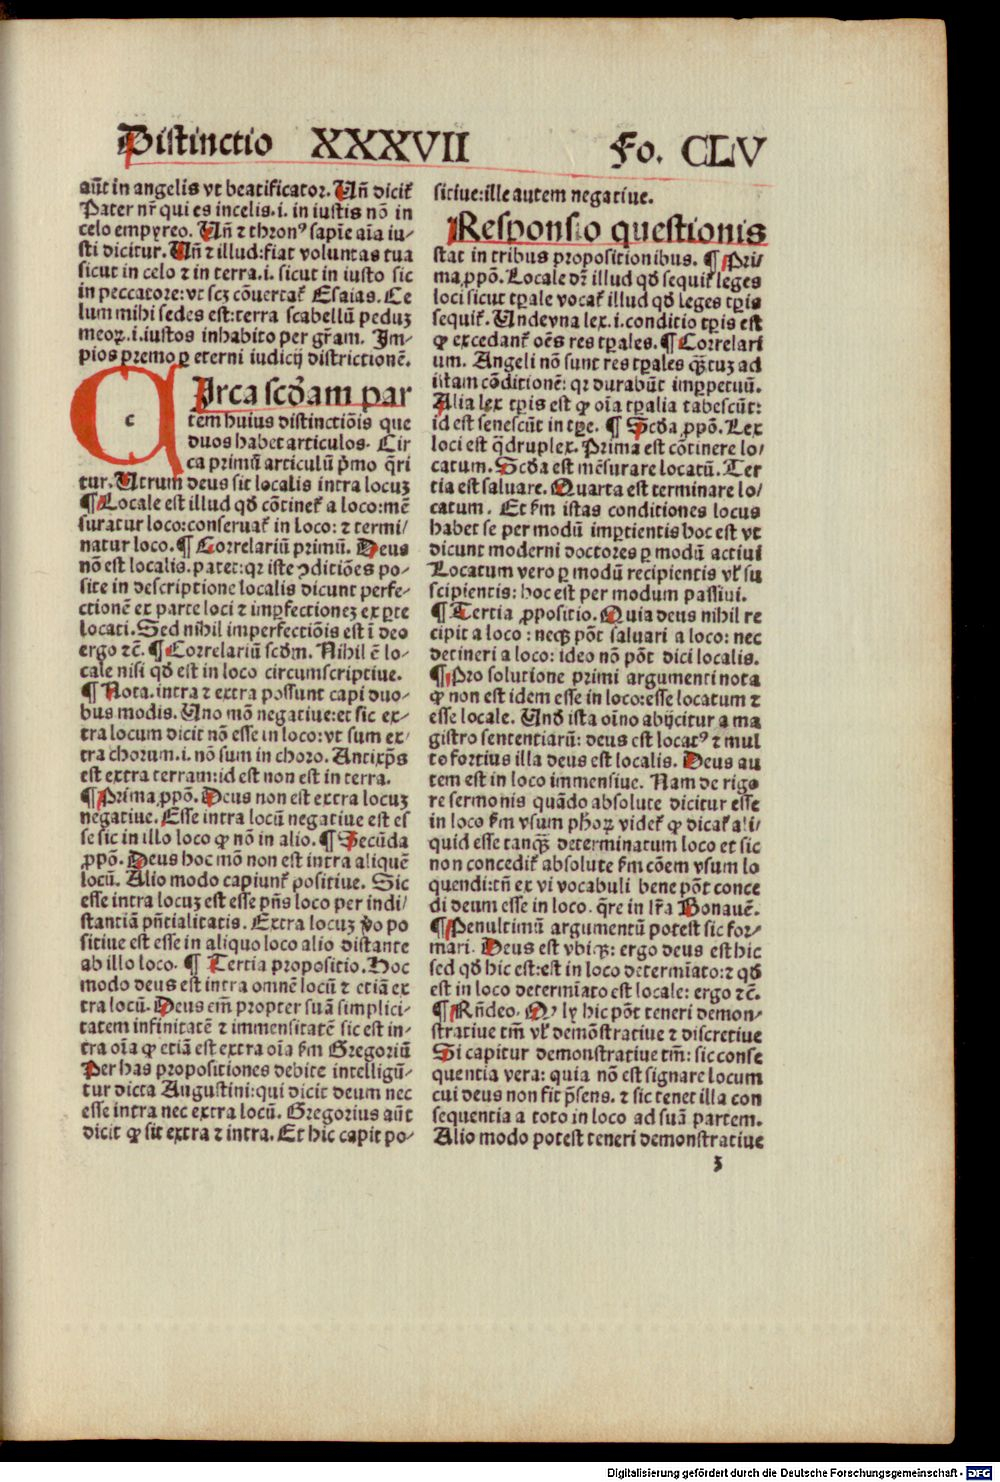 Distinctio XXXVII Fo. CLV
aūt in angelis vt beatificator. Uñ dicit᷑
Pater nr̄ qui es incelis.i. in iustis nō in
celo empyreo. Uñ ⁊ thronꝰ sapiē aīa iu-
sti dicitur. Uñ ⁊ illud:fiat voluntas tua
sicut in celo ⁊ in terra.i. sicut in iusto sic
in peccatore:vt scꝫ cōuertat᷑ Esaias. Ce
lum mihi sedes est:terra scabellū peduꝫ
meoꝝ.i.iustos inhabito per gr̄am. Im-
pios premo ꝑ eterni iudicij districtionē.
CIrca scd̄am par
tem huius distinctiōis que
duos habet articulos. Cir
ca primū articulū p̄mo q̄ri
tur. Utrum deus sit localis intra locuꝫ
¶ Locale est illud qd̄ cōtinet᷑ a loco:mē
suratur loco:conseruat᷑ in loco: ⁊ termi/
natur loco. ¶ Correlariū primū. Deus
nō est localis. patet:qꝛ iste ↄditiōes po-
site in descriptione localis dicunt perfe-
ctionē ex parte loci ⁊ imꝑfectioneꝫ ex ꝑte
locati. Sed nihil imperfectiōis est ī deo
ergo ⁊c̄. ¶ Correlariū scd̄m. Nihil ē lo-
cale nisi qd̄ est in loco circumscriptiue.
¶ Nota. intra ⁊ extra possunt capi duo-
bus modis. Uno mō negatiue:et sic ex/
tra locum dicit nō esse in loco:vt sum ex/
tra chorum.i. nō sum in choro. Antixp̄s
est extra terram:id est non est in terra.
¶ Prima ꝓpō. Deus non est extra locuꝫ
negatiue. Esse intra locū negatiue est es
se sic in illo loco ꝙ nō in alio. ¶ Secūda
ꝓpō. Deus hoc mō non est intra aliquē
locū. Alio modo capiunt᷑ positiue. Sic
esse intra locuꝫ est esse pn̄s loco per indi/
stantiā pn̄tialitatis. Extra locuꝫ v̄o po
sitiue est esse in aliquo loco alio distante
ab illo loco. ¶ Tertia propositio. Hoc
modo deus est intra omnē locū ⁊ etiā ex
tra locū. Deus em̄ propter suā simplici-
tatem infinitatē ⁊ immensitatē sic est in-
tra oīa ꝙ etiā est extra oīa fm̄ Gregoriū
Per has propositiones debite intelligū-
tur dicta Augustini:qui dicit deum nec
esse intra nec extra locū. Gregorius aūt
dicit ꝙ sit extra ⁊ intra. Et hic capit po/
sitiue:ille autem negatiue.
Responsio questionis
stat in tribus propositionibus. ¶ Pri/
ma ꝓpō. Locale dr̄ illud qd̄ sequit᷑ leges
loci sicut tꝑale vocat᷑ illud qd̄ leges tꝑis
sequit᷑. Unde vna lex.i.conditio tꝑis est
ꝙ excedant᷑ oēs res tꝑales. ¶ Correlari
um. Angeli nō sunt res tꝑales qꝫtuꝫ ad
istam cōditionē: qꝛ durabūt imꝑpetuū.
Alia lex tꝑis est ꝙ oīa tꝑalia tabescūt:
id est senescūt in tꝑe. ¶ Scd̄a ꝓpō. Lex
loci est q̄druplex. Prima est cōtinere lo/
catum. Scd̄a est mēsurare locatū. Ter
tia est saluare. Quarta est terminare lo/
catum. Et fm̄ istas conditiones locus
habet se per modū imꝑtientis hoc est vt
dicunt moderni doctores ꝑ modū actiui
Locatum vero ꝑ modū recipientis vl̓ su
scipientis: hoc est per modum passiui.
¶ Tertia ꝓpositio. Quia deus nihil re
cipit a loco : neqꝫ pōt saluari a loco: nec
detineri a loco: ideo nō pōt dici localis.
¶ Pro solutione primi argumenti nota
ꝙ non est idem esse in loco:esse locatum ⁊
esse locale. Und̄ ista oīno abijcitur a ma
gistro sententiarū: deus est locatꝰ ⁊ mul
to fortius illa deus est localis. Deus au
tem est in loco immensiue. Nam de rigo
re sermonis quādo absolute dicitur esse
in loco fm̄ vsum phoꝝ videt᷑ ꝙ dicat᷑ ali/
quid esse tanqꝫ determinatum loco et sic
non concedit᷑ absolute fm̄ cōem vsum lo
quendi:tn̄ ex vi vocabuli bene pōt conce
di deum esse in loco. q̄re in lr̄a Bonauē.
¶ Penultimū argumentū potest sic for/
mari. Deus est vbiqꝫ: ergo deus est hic
sed qd̄ hic est:est in loco determīato:⁊ qd̄
est in loco determīato est locale: ergo ⁊c̄.
¶ Rn̄deo. Ꝙ ly hic pōt teneri demon/
stratiue tm̄ vl̓ demōstratiue ⁊ discretiue
Si capitur demonstratiue tm̄: sic conse
quentia vera: quia nō est signare locum
cui deus non fit p̄sens. ⁊ sic tenet illa con
sequentia a toto in loco ad suā partem.
Alio modo potest teneri demonstratiue
ꝫ
Digitalisierung gefördert durch die Deutsche Forschungsgemeinschaft - DFG